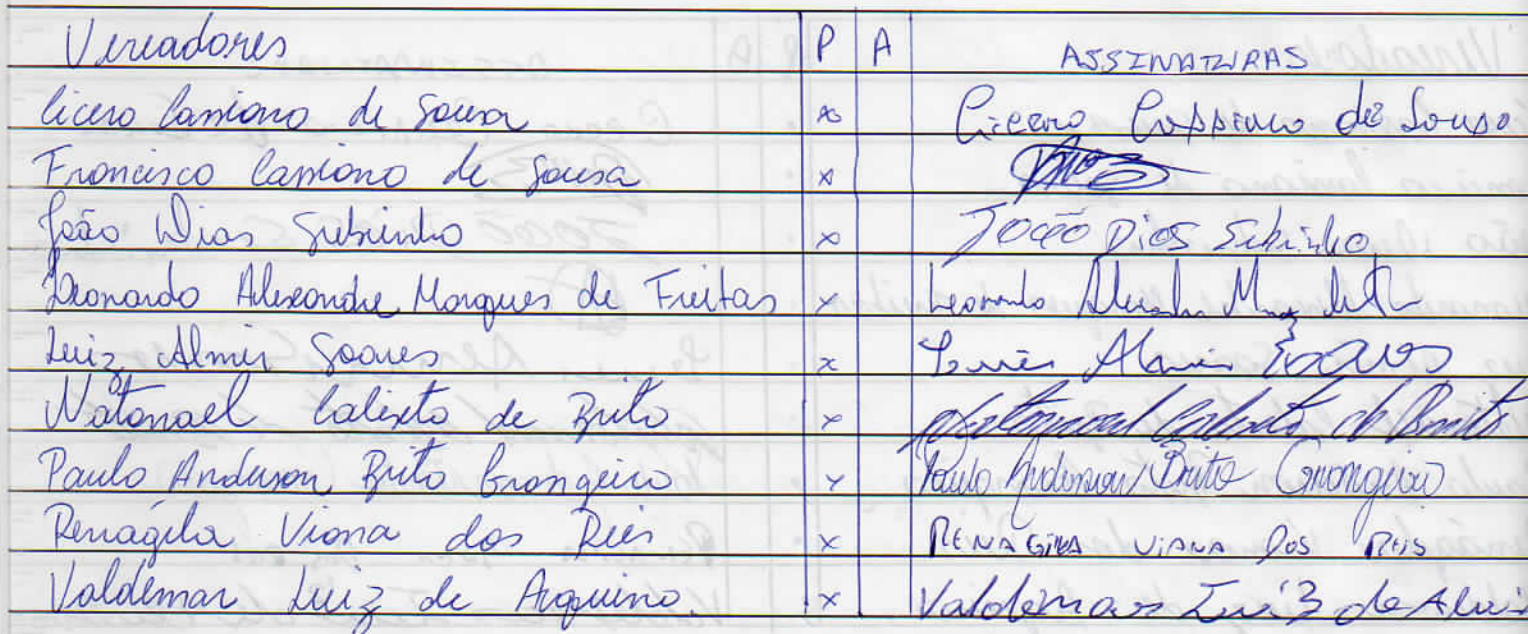 Vereadores P A ASSINATURAS
Cicero Cassiano de Sousa x Cicero Cassiano de Sousa
Francisco Cassiano de Sousa x
João Dias Subrinho x João Dias Subrinho
Leonardo Alexandre Marques de Freitas x Leonardo
Luiz Almir Soares x Luiz Almir Soares
Natanael Calixto de Brito x Natanael Calixto de Brito
Paulo Anderson Brito Grangeiro x Paulo Anderson Brito Grangeiro
Renagila Viana dos Reis x RENAGILA VIANA DOS REIS
Valdemar Luiz de Arquino. x Valdemar Luiz de